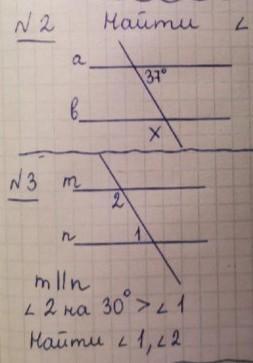 №2 Найти ∠
a
37°
b
x
№3
m
2
n
1
m||n
∠2 на 30° > ∠1
Найти ∠1, ∠2